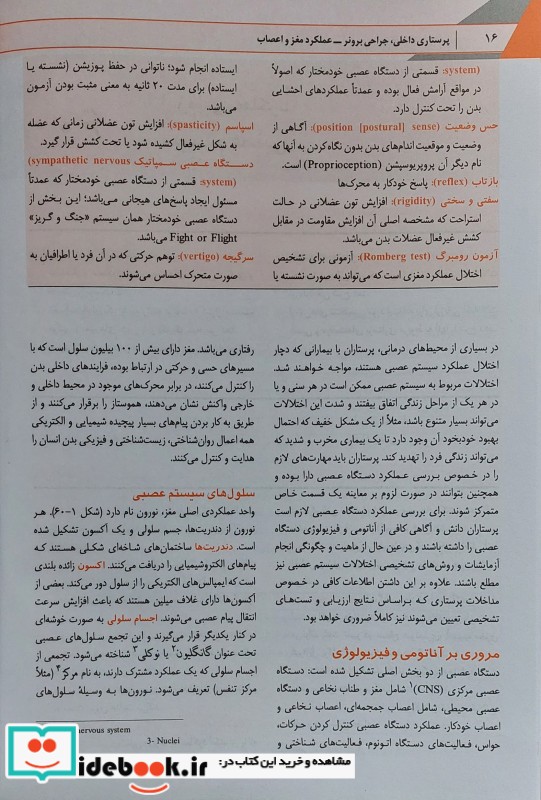 ۱۶ | پرستاری داخلی، جراحی برونر ــ عملکرد مغز و اعصاب
system): قسمتی از دستگاه عصبی خودمختار که اصولاً
در مواقع آرامش فعال بوده و عمدتاً عملکردهای احشایی
بدن را تحت کنترل دارد.
حس وضعیت (position [postural] sense): آگاهی از
وضعیت و موقعیت اندام‌های بدن بدون نگاه کردن به آنها که
نام دیگر آن پروپریوسپشن (Proprioception) است.
بازتاب (reflex): پاسخ خودکار به محرک‌ها
سفتی و سختی (rigidity): افزایش تون عضلانی در حالت
استراحت که مشخصه اصلی آن افزایش مقاومت در مقابل
کشش غیرفعال عضلات بدن می‌باشد.
آزمون رومبرگ (Romberg test): آزمونی برای تشخیص
اختلال عملکرد مغزی است که می‌تواند به صورت نشسته یا
ایستاده انجام شود؛ ناتوانی در حفظ پوزیشن (نشسته یا
ایستاده) برای مدت ۲۰ ثانیه به معنی مثبت بودن آزمون
می‌باشد.
اسپاسم (spasticity): افزایش تون عضلانی زمانی که عضله
به شکل غیرفعال کشیده شود یا تحت کشش قرار گیرد.
دستگاه عصبی سمپاتیک (sympathetic nervous
system): قسمتی از دستگاه عصبی خودمختار که عمدتاً
مسئول ایجاد پاسخ‌های هیجانی می‌باشد؛ این بخش از
دستگاه عصبی خودمختار همان سیستم «جنگ و گریز»
Fight or Flight می‌باشد.
سرگیجه (vertigo): توهم حرکتی که در آن فرد یا اطرافیان به
صورت متحرک احساس می‌شوند.
در بسیاری از محیط‌های درمانی، پرستاران با بیمارانی که دچار
اختلال عملکرد سیستم عصبی هستند، مواجه خواهند شد.
اختلالات مربوط به سیستم عصبی ممکن است در هر سنی و یا
در هر یک از مراحل زندگی اتفاق بیفتند و شدت این اختلالات
می‌تواند بسیار متنوع باشد، مثلاً از یک مشکل خفیف که احتمال
بهبود خودبخود آن وجود دارد تا یک بیماری مخرب و شدید که
می‌تواند زندگی فرد را تهدید کند. پرستاران باید مهارت‌های لازم
را در خصوص بررسی عملکرد دستگاه عصبی دارا بوده و
همچنین بتوانند در صورت لزوم بر معاینه یک قسمت خاص
متمرکز شوند. برای بررسی عملکرد دستگاه عصبی لازم است
پرستاران دانش و آگاهی کافی از آناتومی و فیزیولوژی دستگاه
عصبی را داشته باشند و در عین حال از ماهیت و چگونگی انجام
آزمایشات و روش‌های تشخیصی اختلالات سیستم عصبی نیز
مطلع باشند. علاوه بر این داشتن اطلاعات کافی در خصوص
مداخلات پرستاری که براساس نتایج ارزیابی و تست‌های
تشخیصی تعیین می‌شوند نیز کاملاً ضروری خواهد بود.
مروری بر آناتومی و فیزیولوژی
دستگاه عصبی از دو بخش اصلی تشکیل شده است: دستگاه
عصبی مرکزی (CNS)۱ شامل مغز و طناب نخاعی و دستگاه
عصبی محیطی، شامل اعصاب جمجمه‌ای، اعصاب نخاعی و
اعصاب خودکار. عملکرد دستگاه عصبی کنترل کردن حرکات،
حواس، فعالیت‌های دستگاه اتونوم، فعالیت‌های شناختی و
رفتاری می‌باشد. مغز دارای بیش از ۱۰۰ بیلیون سلول است که با
مسیرهای حسی و حرکتی در ارتباط بوده، فرایندهای داخلی بدن
را کنترل می‌کنند، در برابر محرک‌های موجود در محیط داخلی و
خارجی واکنش نشان می‌دهند، هموستاز را برقرار می‌کنند و از
طریق به کار بردن پیام‌های بسیار پیچیده شیمیایی و الکتریکی
همه اعمال روان‌شناختی، زیست‌شناختی و فیزیکی بدن انسان را
هدایت و کنترل می‌کنند.
سلول‌های سیستم عصبی
واحد عملکردی اصلی مغز، نورون نام دارد (شکل ۱-۶۰). هر
نورون از دندریت‌ها، جسم سلولی و یک آکسون تشکیل شده
است. دندریت‌ها ساختمان‌های شاخه‌ای شکلی هستند که
پیام‌های الکتروشیمیایی را دریافت می‌کنند. آکسون زائده بلندی
است که ایمپالس‌های الکتریکی را از سلول دور می‌کند. بعضی از
آکسون‌ها دارای غلاف میلین هستند که باعث افزایش سرعت
انتقال پیام عصبی می‌شوند. اجسام سلولی به صورت خوشه‌ای
در کنار یکدیگر قرار می‌گیرند و این تجمع سلول‌های عصبی
تحت عنوان گانگلیون۲ یا نوکلی۳ شناخته می‌شود. تجمعی از
اجسام سلولی که یک عملکرد مشترک دارند، به نام مرکز۴ (مثلاً
مرکز تنفس) تعریف می‌شود. نورون‌ها به وسیلهٔ سلول‌های
nervous system
3- Nuclei
idebook.ir
مشاهده و خرید این کتاب در: